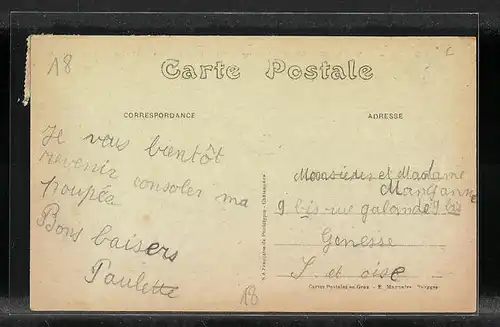 18
Carte Postale
CORRESPONDANCE
ADRESSE
Je vous bientôt
revenir consoler ma
poupéa
Bons baisers
Paulette
Monsieur et Madame
9 bis rue galande 9 bis
Genesse
S. et oise
18
Cartes Postales en Gros - E.